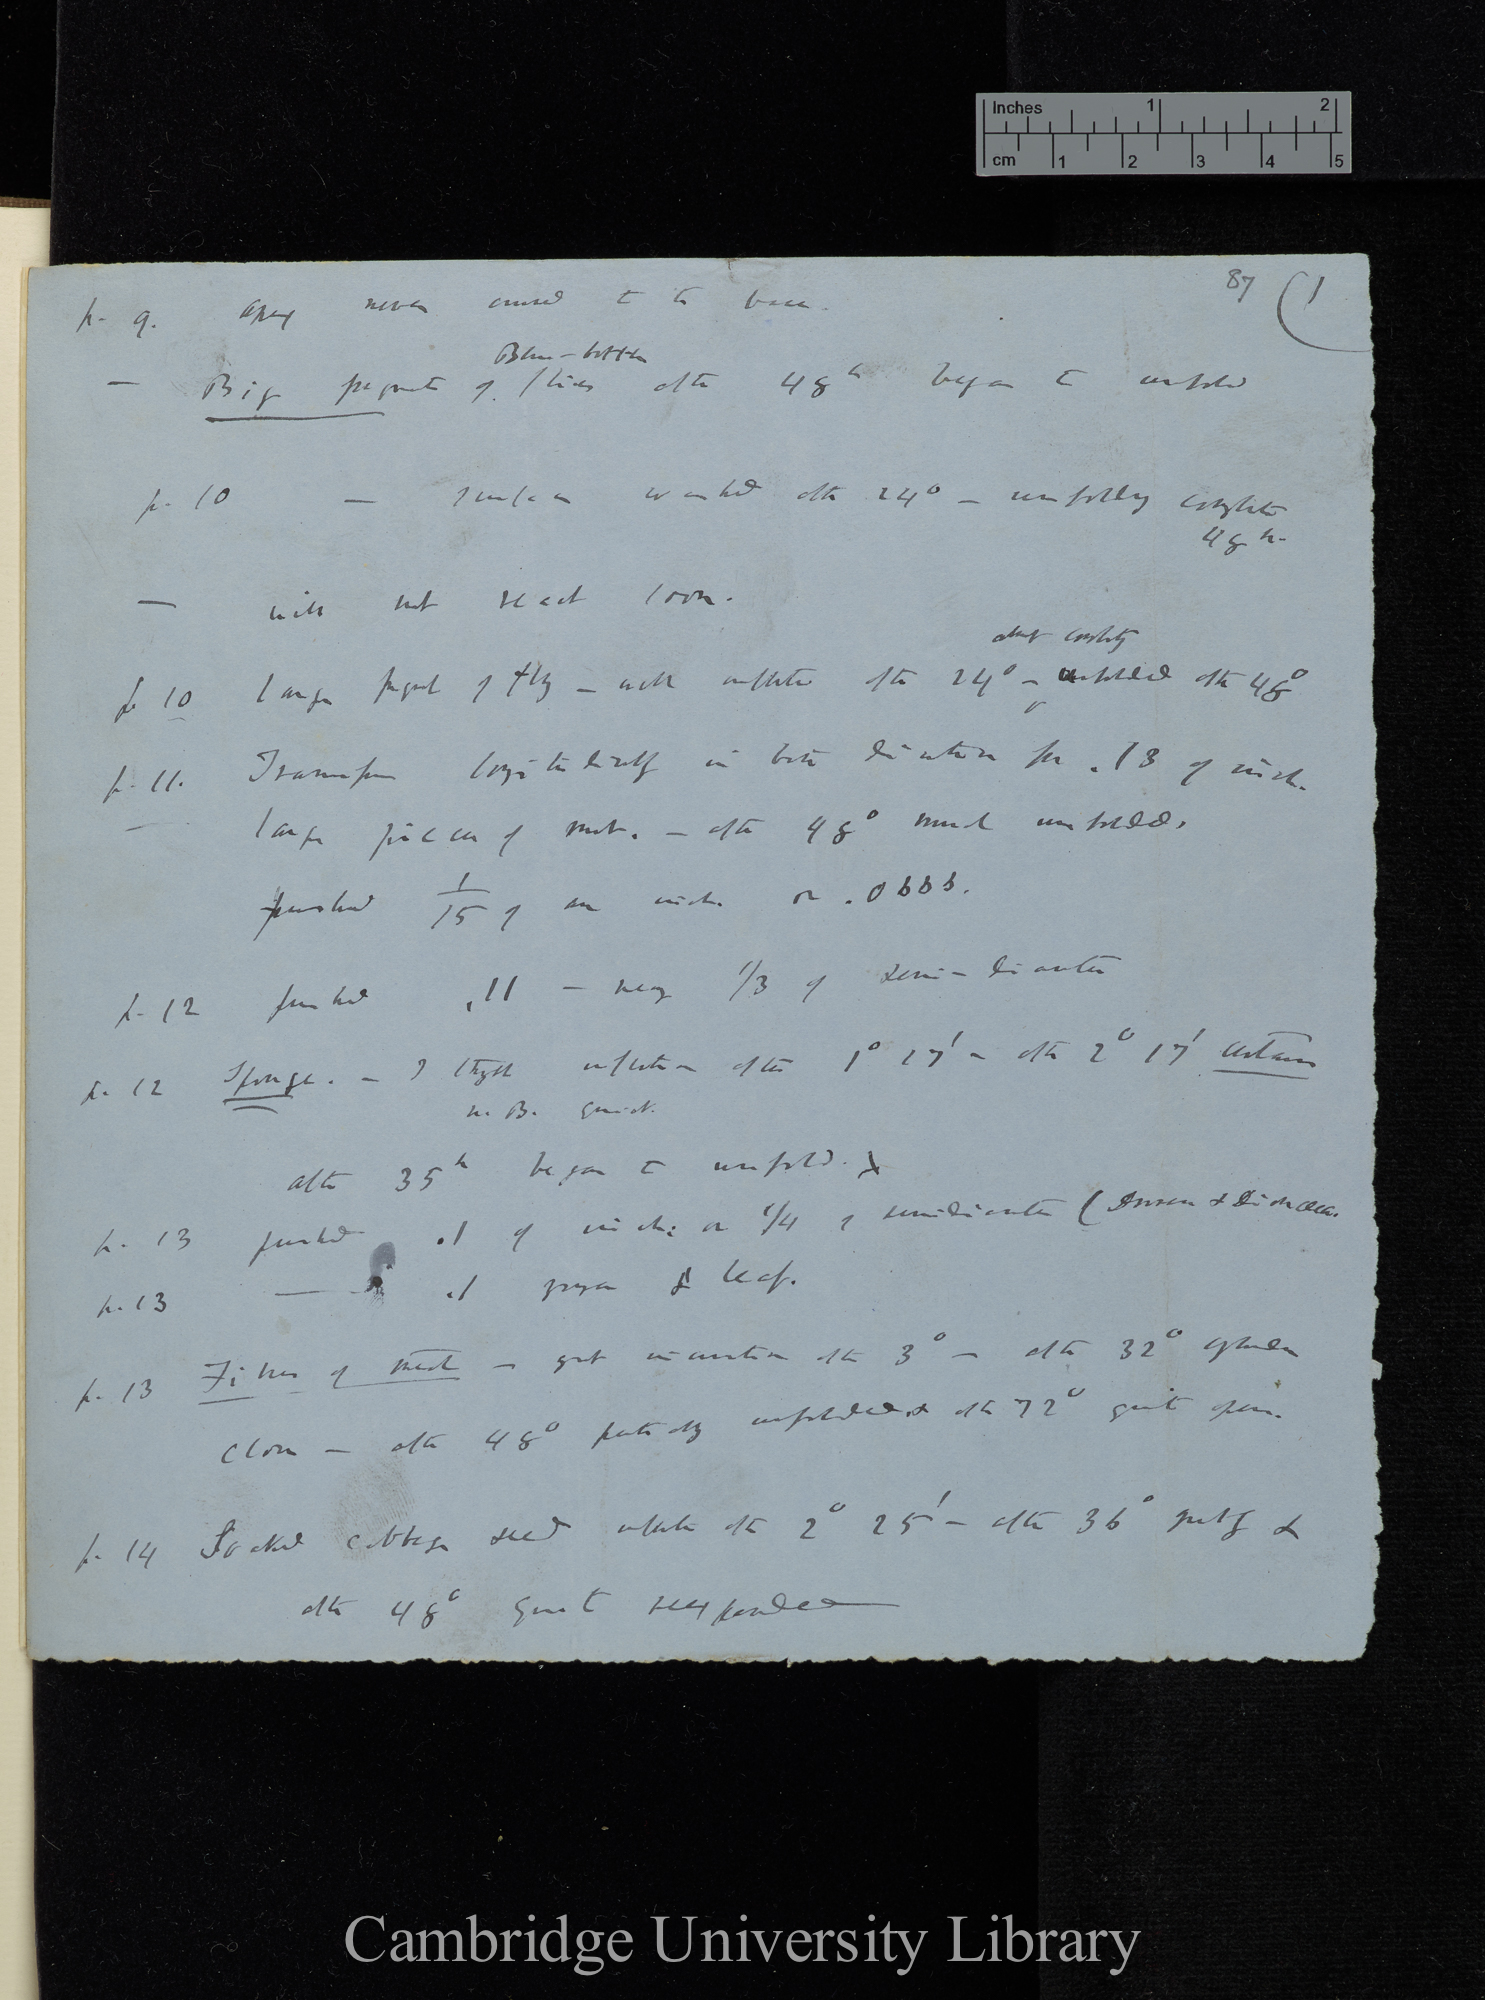 Inches 1 2
cm 1 2 3 4 5
87 (1
p. 9. apex never curved to the base.
Blue-bottle
— Big fragments of flies after 48h began to unfold
p. 10 — similar after 24° — unfolding complete
48h.
— will not react soon.
almost completely
p. 10 large fragment of fly — well inflected after 24° — unfolded after 48°
p. 11. longitudinally in both directions for .13 of inch.
— large pieces of meat. — after 48° much unfolded.
pushed 1/15 of an inch or .0666.
p. 12 pushed .11 — nearly 1/3 of semi-diameter
p. 12 Sponge. — I thought inflection after 1° 17' — after 2° 17' certain
N.B. quick.
after 35h began to unfold.
p. 13 pushed .1 of inch; or 1/4 of semidiameter (Drosera & Dionaea.
p. 13 — .1 & leaf.
p. 13 Fibres of meat — great incurvation after 3° — after 32°
close — after 48° partially unfolded & after 72° quite open.
p. 14 Soaked cabbage seed inflected after 2° 25' — after 36° partly &
after 48° quite reexpanded
Cambridge University Library